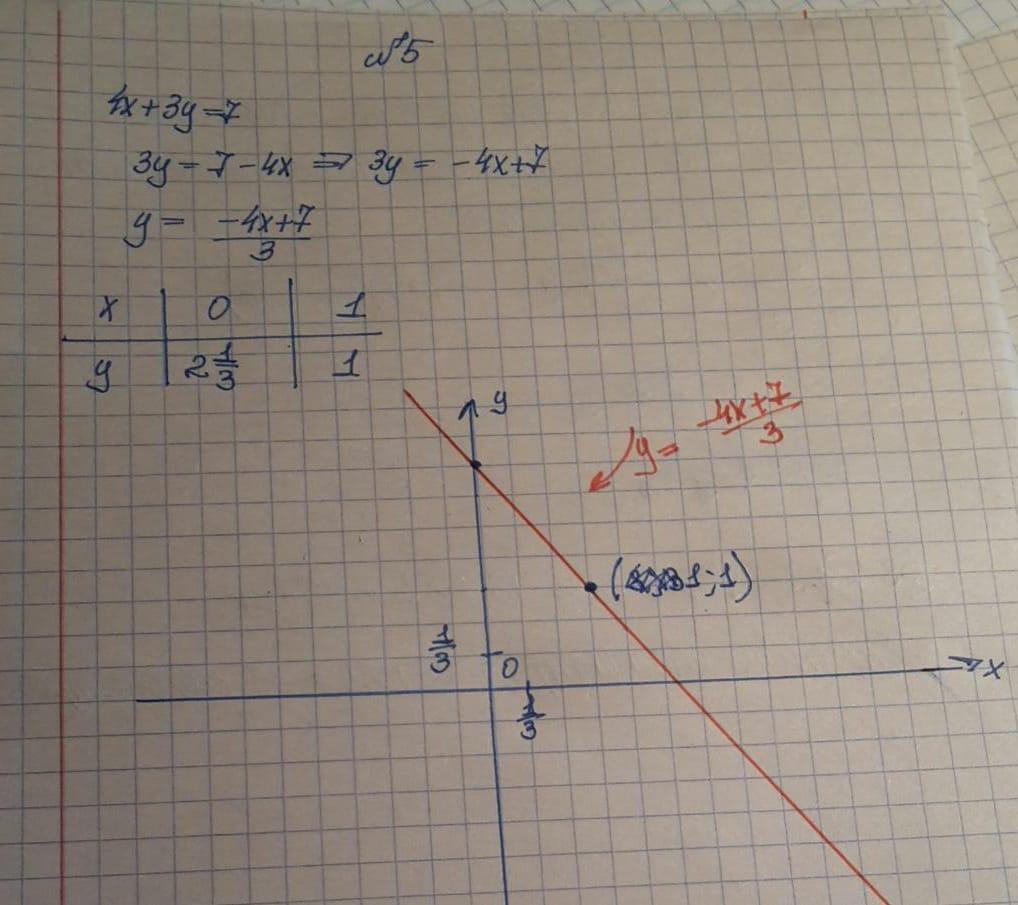 №5
4x+3y=7
3y=7-4x ⇒ 3y=-4x+7
y= \frac{-4x+7}{3}
x | 0 | 1
y | 2 \frac{1}{3} | 1
y
y= \frac{-4x+7}{3}
(1;1)
\frac{1}{3}
0
x
\frac{1}{3}